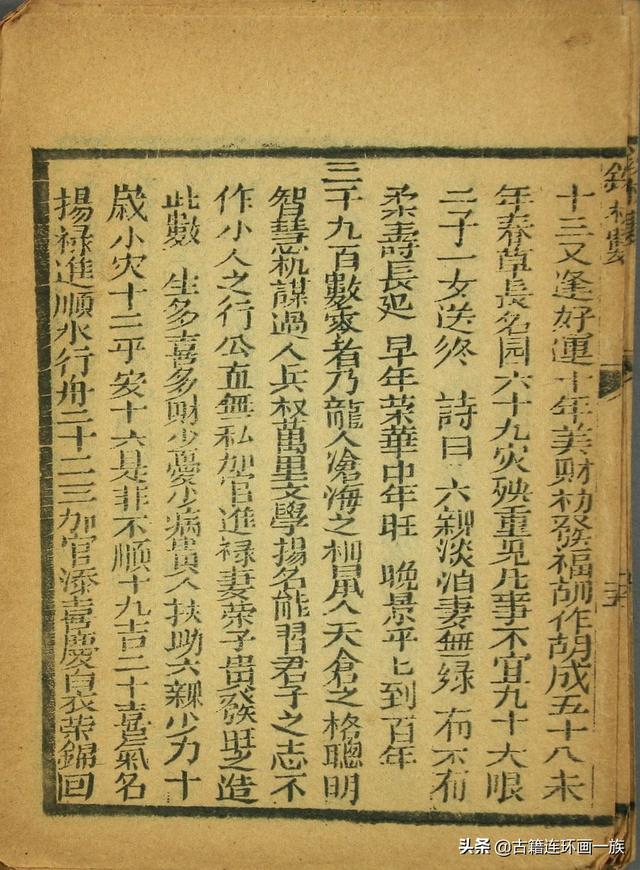 十三又逢好運十年美財材發福胡作胡成五十八未
年春草長名园六十九灾殃重見凡事不宜九十大限
二子一女送终 詩曰 六親淡泊妻無缘 有不有
柔壽長延 早年荣華中年旺 晚景平亡到百年
三千九百數 者乃龍人滄海之相鼠人天倉之格聰明
智慧机謀過人兵权萬里文學揚名能習君子之志不
作小人之行公直無私加官進禄妻荣子貴發旺之造
此數 生多喜多財少憂少病貴人扶助六親少力十
歲小灾十二平安十六是非不順十九吉二十喜氣名
揚禄進順水行舟二十二三加官添喜慶白衣荣錦回
头条 @古籍连环画一族